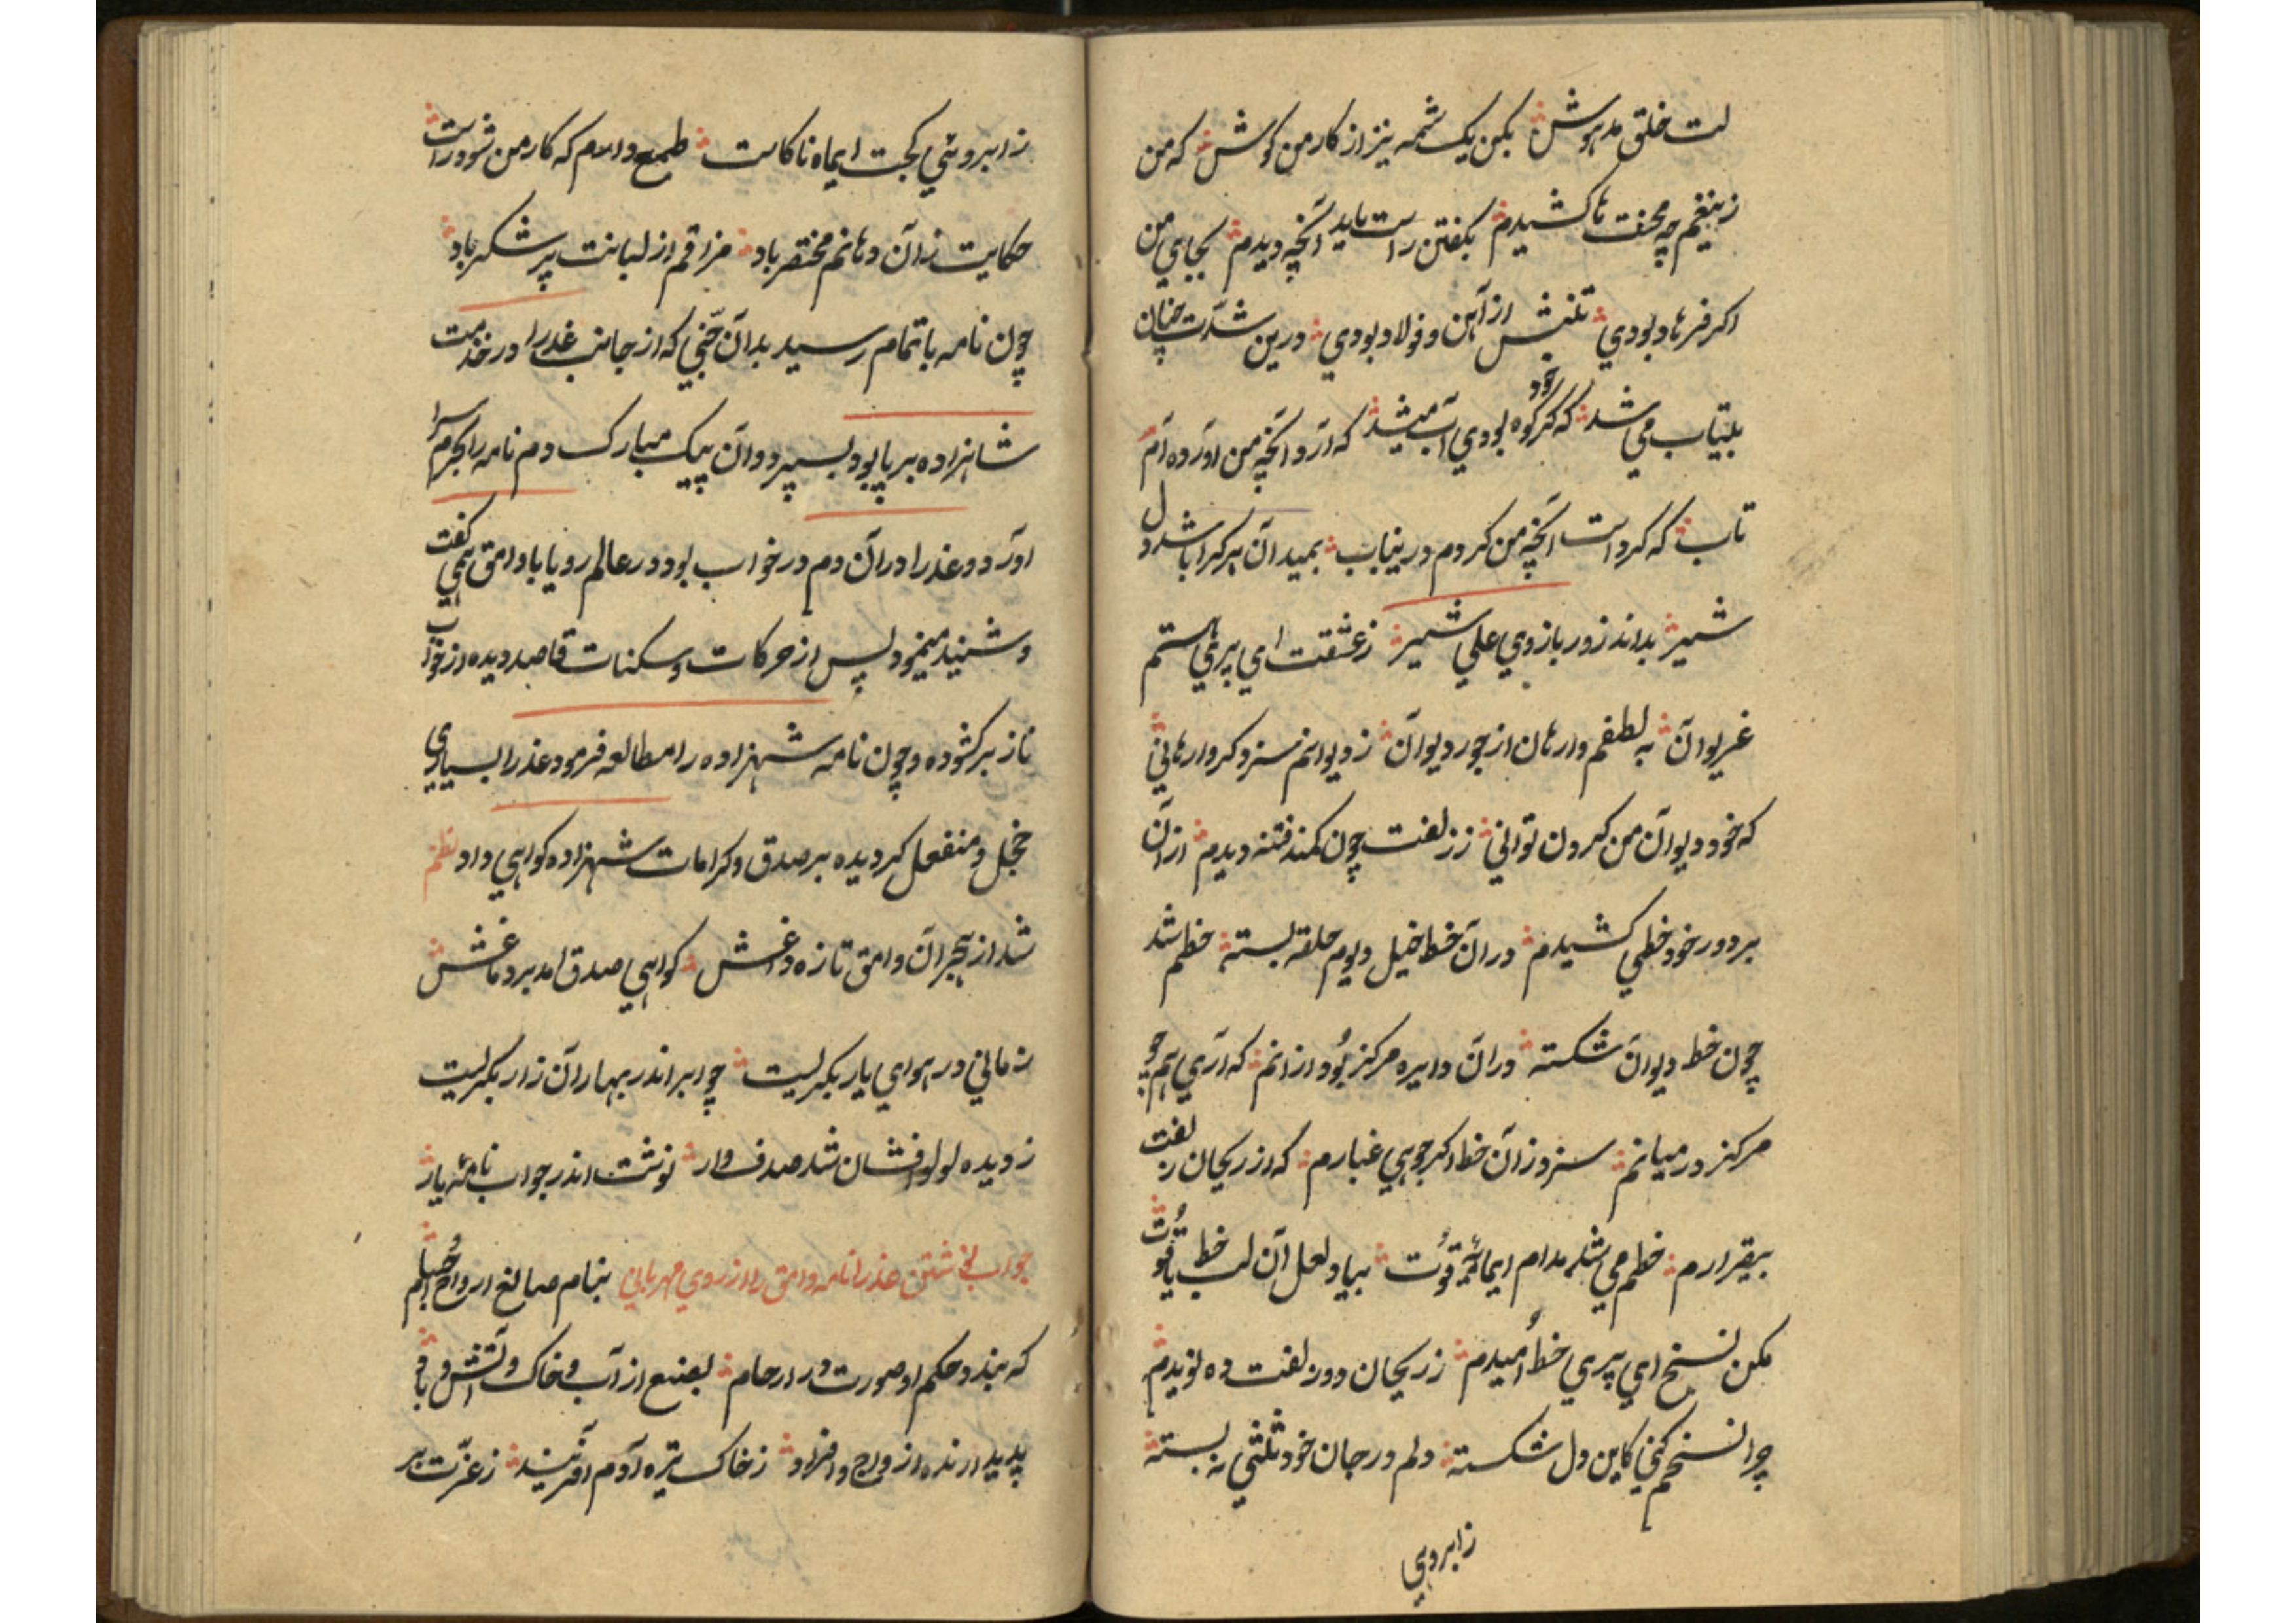 لت خلق مدهوش بکن یک شمه نیز از کار من کوش که من
زینغم چه محنت ها کشیدم بکفتن راست ناید آنچه دیدم بجای من
اکر فرهاد بودی تنش از آهن و فولاد بودی درین شدت چنان
بیتاب می شد که کر کوه بودی آب میشد که آرد آنچه من آورده ام
تاب که کرداست آنچه من کردم درینباب بمیدان هر کرا باشد دل
شیر بداند زور بازوی علی شیر زعشقت ای پری هستم
غریوان به لطفم وارهان از جور دیوان ز دیوانم سزد کر وارهانی
که خود دیوان من کردن توانی ز زلفت چون کمند فتنه دیدم از آن
بر دور خود خطی کشیدم در آن خط خیل دیوم حلقه بسته خطم شد
چون خط دیوان شکسته در آن دایره مرکز بود از انم که آری هم چو
مرکز در میانم سزد زان خط اکر جویی غبارم که از ریحان زلفت
بیقرارم خطم می شد مدام ایماه قوت بیاد لعل آن لب خط یاقوت
مکن نسخ ای پری خط امیدم ز ریحان دو زلفت ده نویدم
چرا نسخم کنی کاین دل شکسته دلم در جان خود ثلثی نه بسته
ز ابرویی
ز ابروئی کجت ایماه ناکاست طمع دارم که کار من شود راست
حکایت زان دهانم مختصر باد مزاقم از لبانت پر شکر باد
چون نامه باتمام رسید بدان جنی که از جانب عذرا در خدمت
شاهزاده بر پا بود بسپرد و آن پیک مبارک دم نامه را بحرم سرا
آورد و عذرا در آن دم در خواب بود در عالم رویا با وامق همی کفت
و شنید مینمود پس از حرکات و سکنات قاصد دیده از خواب
ناز برکشوده و چون نامه شهزاده را مطالعه فرمود عذرا بسیاری
خجل و منفعل کردیده بر صدق و کرامات شهزاده کواهی داد نظم
شد از هجران وامق تازه داغش کواهی صدق امد بر دماغش
زمانی در هوای یار بکریست چو ابر اندر بهاران زار بکریست
ز دیده لولو افشان شد صدف وار نوشت اندر جواب نامه یار
جواب نوشتن عذرا نامه وامق را از روی مهربانی بنام صانع ارواح و اجسام
که بندد حکم او صورت در ارحام بصنع از آب و خاک و آتش و باد
پدید ارنده ازواج و افراد ز خاک تیره آدم آفریند ز عزت بر